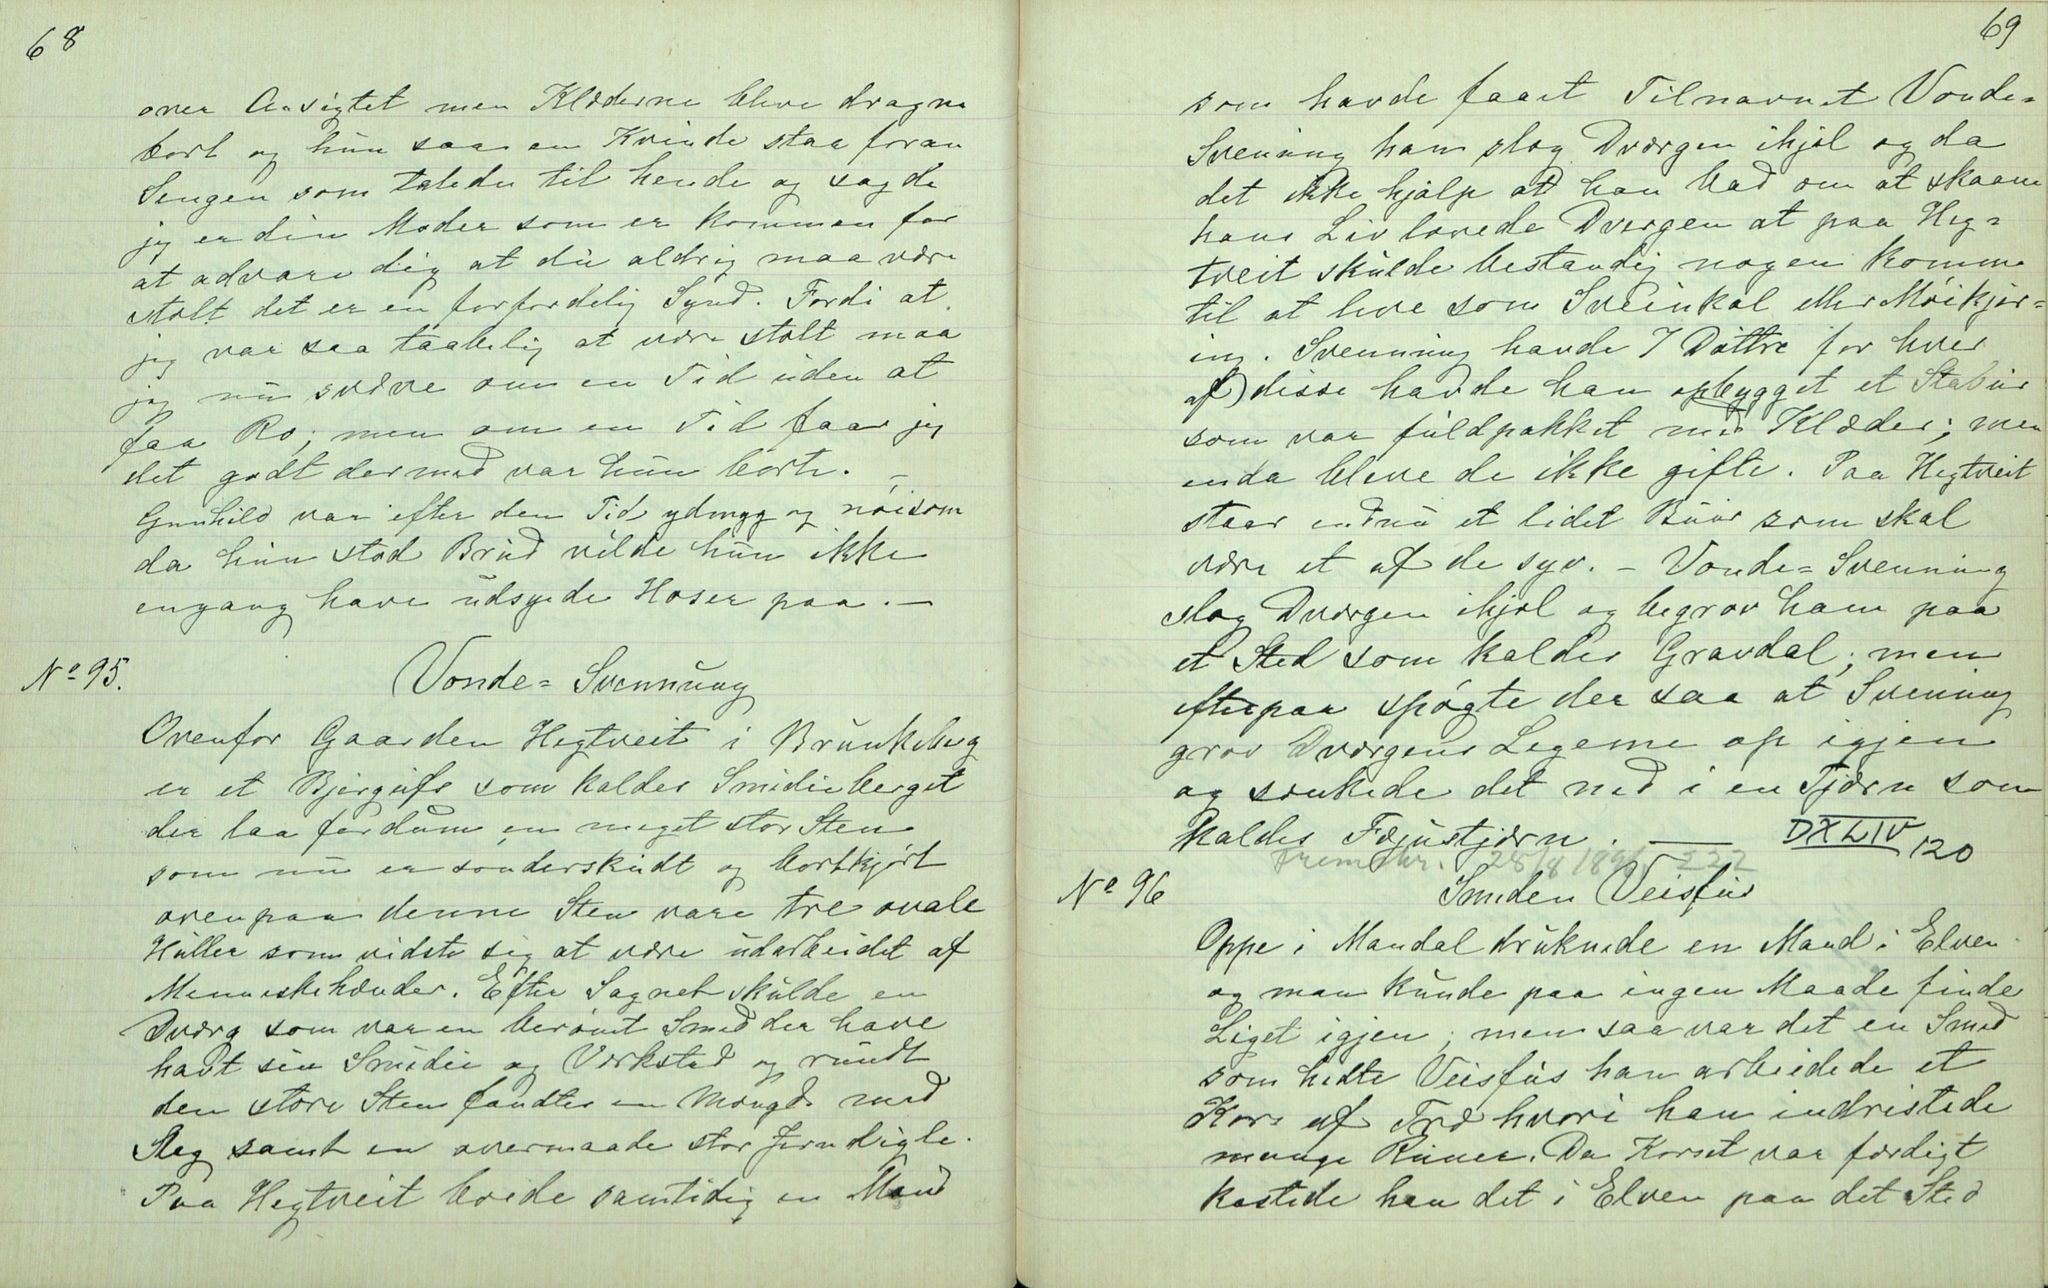 68
over Ansigtet men Klæderne bleve dragne
bort og hun saa en Kvinde staa foran
Sengen som talede til hende og sagde
jeg er din Moder som er kommen for
at advare dig at du aldrig maa være
stolt det er en forfærdelig Synd. Fordi at
jeg var saa taabelig at være stolt maa
jeg nu sveve om en Tid uden at
faa Ro; men om en Tid faar jeg
det godt dermed var hun borte. —
Gunhild var efter den Tid ydmyg og nöisom
da hun stod Brud vilde hun ikke
engang have udsyede Hoser paa. —
No 95.
Vonde= Svennung
Ovenfor Gaarden Hegtveit i Brunkeberg
er et Bjerg som kaldes Smidieberget
der laa fordum en meget stor Sten
som nu er sönderskudt og bortkjört
ovenpaa denne Sten vare tre ovale
Huller som vidste sig at være udarbeidet af
Menneskehænder. Efter Sagnet skulde en
Dværg som var en berömt Smed der have
havt sin Smidie og Værksted og rundt
den store Sten fandtes en Mængde med
Slag samt en overmaade stor Jerndigle.
Paa Hegtveit boede samtidig en Mand
69
som havde faaet Tilnavnet Vonde=
Svenning han slog Dværgen ihjel og da
det ikke hjalp at han bad om at skaane
hans Liv lovede Dvergen at paa Heg=
tveit skulde bestandig nogen komme
til at leve som Sveinkal eller Möikjær=
ing. Svenning havde 7 Döttre for hver
af disse havde han opbygget et Stabur
som var fuldpakket med Klæder; men
enda bleve de ikke gifte. Paa Hegtveit
staar endnu et lidet Buur som skal
være et af de syv. – Vonde= Svenning
slog Dværgen ihjel og begrov ham paa
et Sted som kaldes Gravdal; men
efterpaa spögte der saa at Svening
grov Dværgens Legeme op igjen
og sænkede det ned i en Tjærn som
kaldes Fæjustjærn. —
DXLIV
120
28/8 189
222
No 96
Smeden Veisfus
Oppe i Mandal druknede en Mand i Elven
og man kunde paa ingen Maade finde
Liget igjen; men saa var det en Smed
som hedte Veisfus han arbeidede et
Kors af Træ hvori han indristede
mange Runer. Da Korset var færdigt
kastede han det i Elven paa det Sted